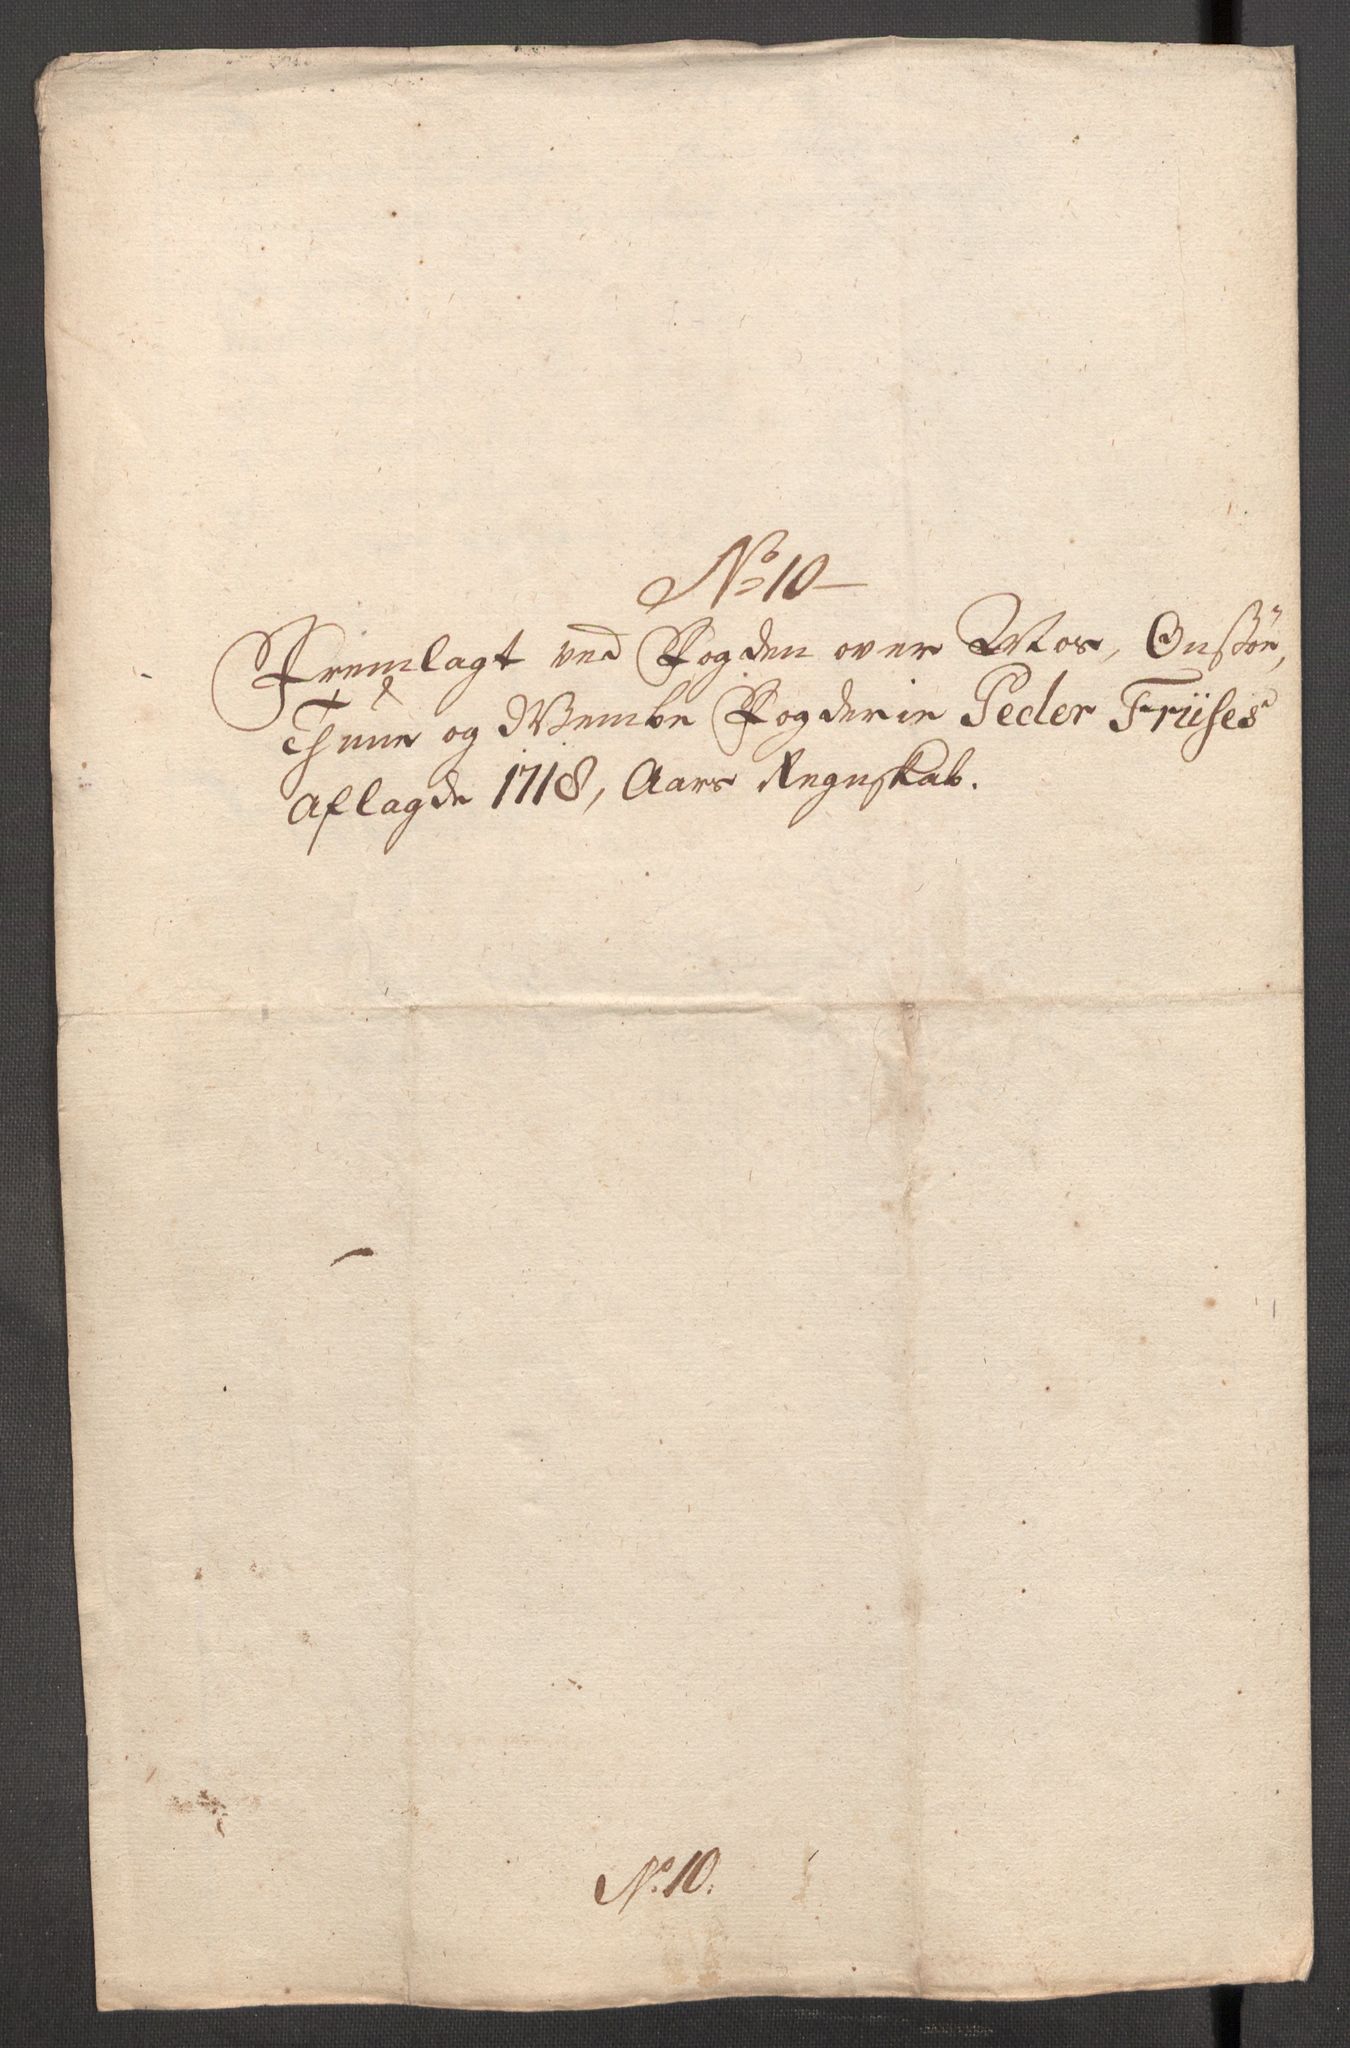 No 10
Fremlagt ved Fogden over Mos, Onssøe,
Thune og Wembe Fogderie Peder Friises
Aflagde 1718, Aars Regnskab.
No. 10.